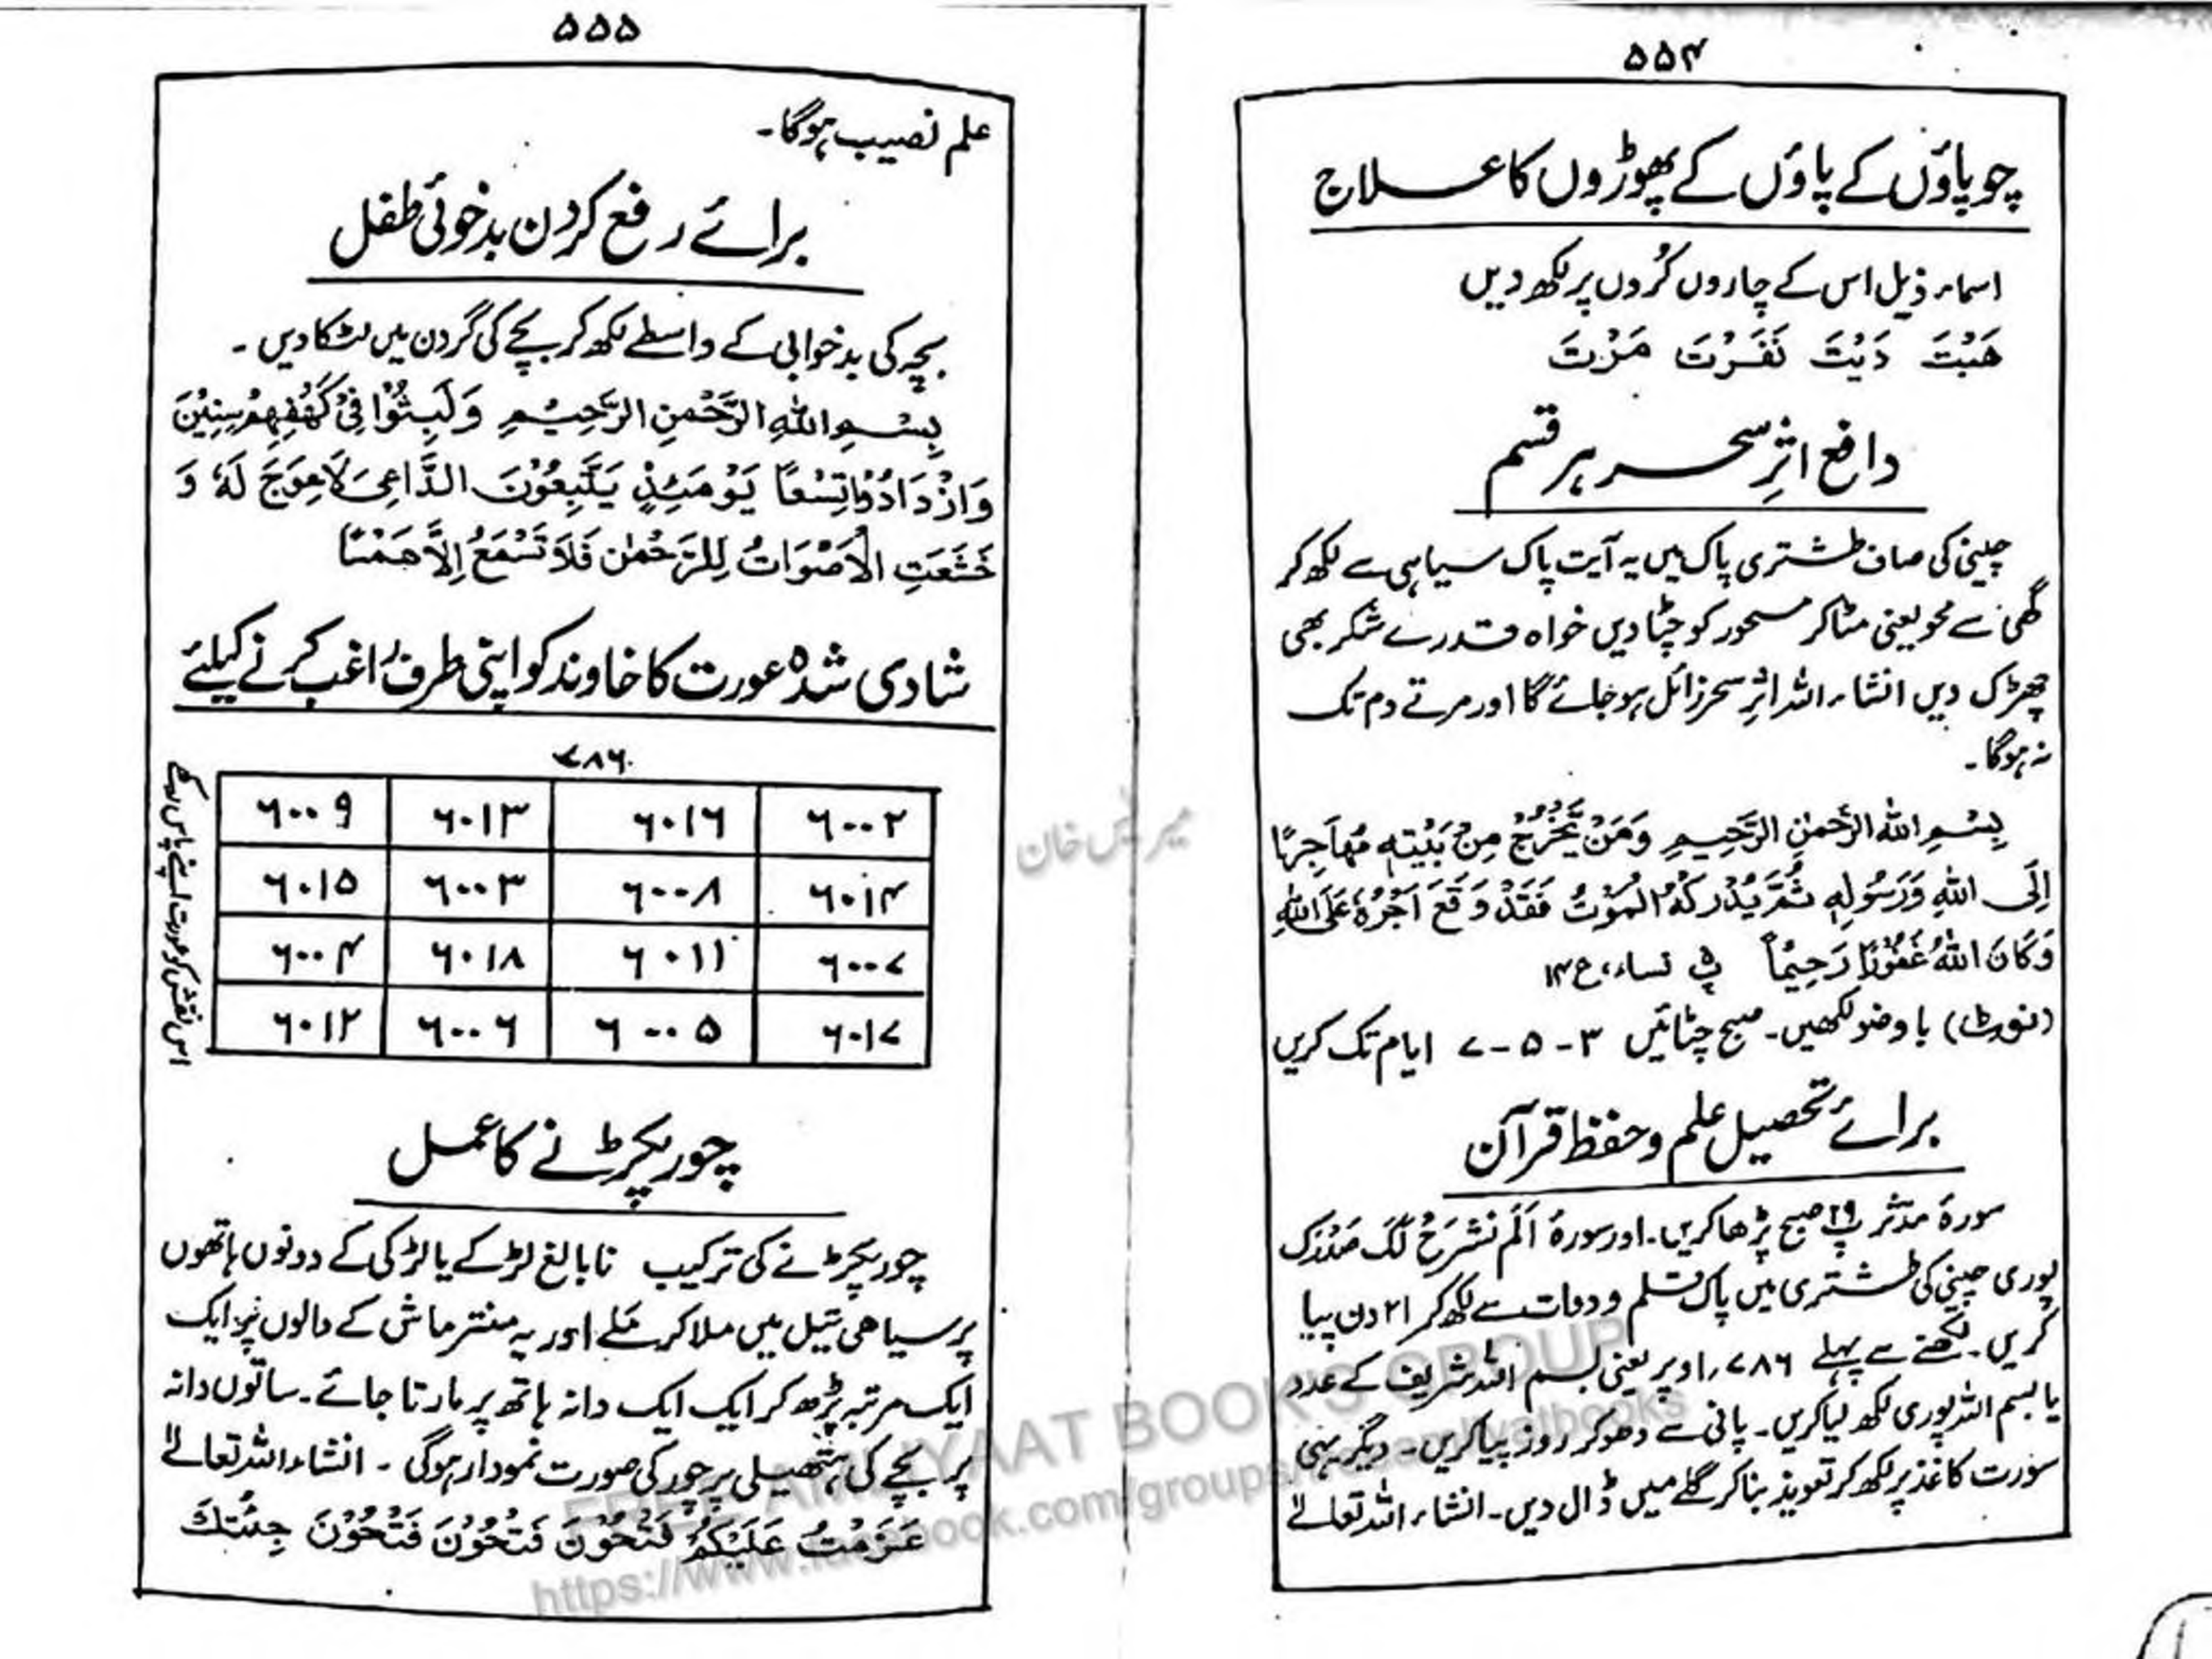 ۵۵۴
چوپاؤں کے پاؤں کے پھوڑوں کا علاج
اسماء ذیل اس کے چاروں کُروں پر لکھ دیں
هَبْتَ دَيْتَ نَفَرْتَ مَرْتَ
دافع اثرِ سحر ہر قسم
چینی کی صاف طشتری پاک میں یہ آیت پاک سیاہی سے لکھ کر
گھی سے محو یعنی مٹا کر مسحور کو چٹا دیں خواہ قدرے شکر بھی
چھڑک دیں انشاء اللہ اثرِ سحر زائل ہو جائے گا اور مرتے دم تک
نہ ہوگا۔
بِسْمِ اللهِ الرَّحْمٰنِ الرَّحِيْمِ وَمَنْ يَّخْرُجْ مِنْ بَيْتِهٖ مُهَاجِرًا
اِلَى اللهِ وَرَسُوْلِهٖ ثُمَّ يُدْرِكْهُ الْمَوْتُ فَقَدْ وَقَعَ اَجْرُهٗ عَلَى اللهِ
وَكَانَ اللهُ غَفُوْرًا رَحِيْمًا پ۵ نساء، ع ۱۴
(نوٹ) با وضو لکھیں۔ صبح چٹائیں ۳-۵-۷ ایام تک کریں
برائے تحصیل علم و حفظ قرآن
سورۂ مدثر پ۲۹ صبح پڑھا کریں۔ اور سورۂ اَلَم نَشرَحْ لَکَ صَدْرَک
پوری چینی کی طشتری میں پاک قلم و دوات سے لکھ کر ۲۱ دن پیا
کریں۔ لکھنے سے پہلے ۷۸۶ اوپر یعنی بسم اللہ شریف کے عدد
یا بسم اللہ پوری لکھ لیا کریں۔ پانی سے دھو کر روز پیا کریں۔ دیگر یہی
سورت کاغذ پر لکھ کر تعویذ بنا کر گلے میں ڈال دیں۔ انشاء اللہ تعالےٰ
۵۵۵
علم نصیب ہوگا۔
برائے رفع کردن بدخوئی طفل
بچہ کی بدخوابی کے واسطے لکھ کر بچے کی گردن میں لٹکا دیں۔
بِسْمِ اللهِ الرَّحْمٰنِ الرَّحِيْمِ وَلَبِثُوْا فِيْ كَهْفِهِمْ سِنِيْنَ
وَازْدَادُوْا تِسْعًا يَوْمَئِذٍ يَتَّبِعُوْنَ الدَّاعِيَ لَا عِوَجَ لَهٗ وَ
خَشَعَتِ الْاَصْوَاتُ لِلرَّحْمٰنِ فَلَا تَسْمَعُ اِلَّا هَمْسًا
شادی شدہ عورت کا خاوند کو اپنی طرف راغب کرنے کیلئے
۷۸۶
۶۰۰۲ ۶۰۱۶ ۶۰۱۳ ۶۰۰۹
۶۰۱۴ ۶۰۰۸ ۶۰۰۳ ۶۰۱۵
۶۰۰۷ ۶۰۱۱ ۶۰۱۸ ۶۰۰۴
۶۰۱۷ ۶۰۰۵ ۶۰۰۶ ۶۰۱۲
اس نقش کو عورت اپنے پاس رکھے
چور پکڑنے کا عمل
چور پکڑنے کی ترکیب نابالغ لڑکے یا لڑکی کے دونوں ہاتھوں
پر سیاھی تیل میں ملا کر ملے اور یہ منتر ماش کے دالوں پر ایک
ایک مرتبہ پڑھ کر ایک ایک دانہ ہاتھ پر مارتا جائے۔ ساتوں دانہ
پر بچے کی ہتھیلی پر چور کی صورت نمودار ہوگی۔ انشاء اللہ تعالےٰ
عَزَمْتُ عَلَيْكُمْ فَتْحُوْنَ فَتْحُوْنَ فَتْحُوْنَ جِئْتُكَ
FREE AMLIYAAT BOOK'S GROUP